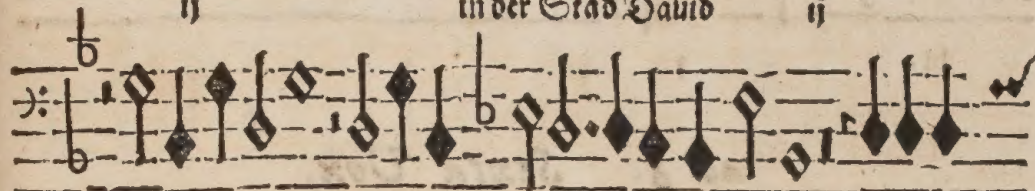 ij in der Stad Dauid ij